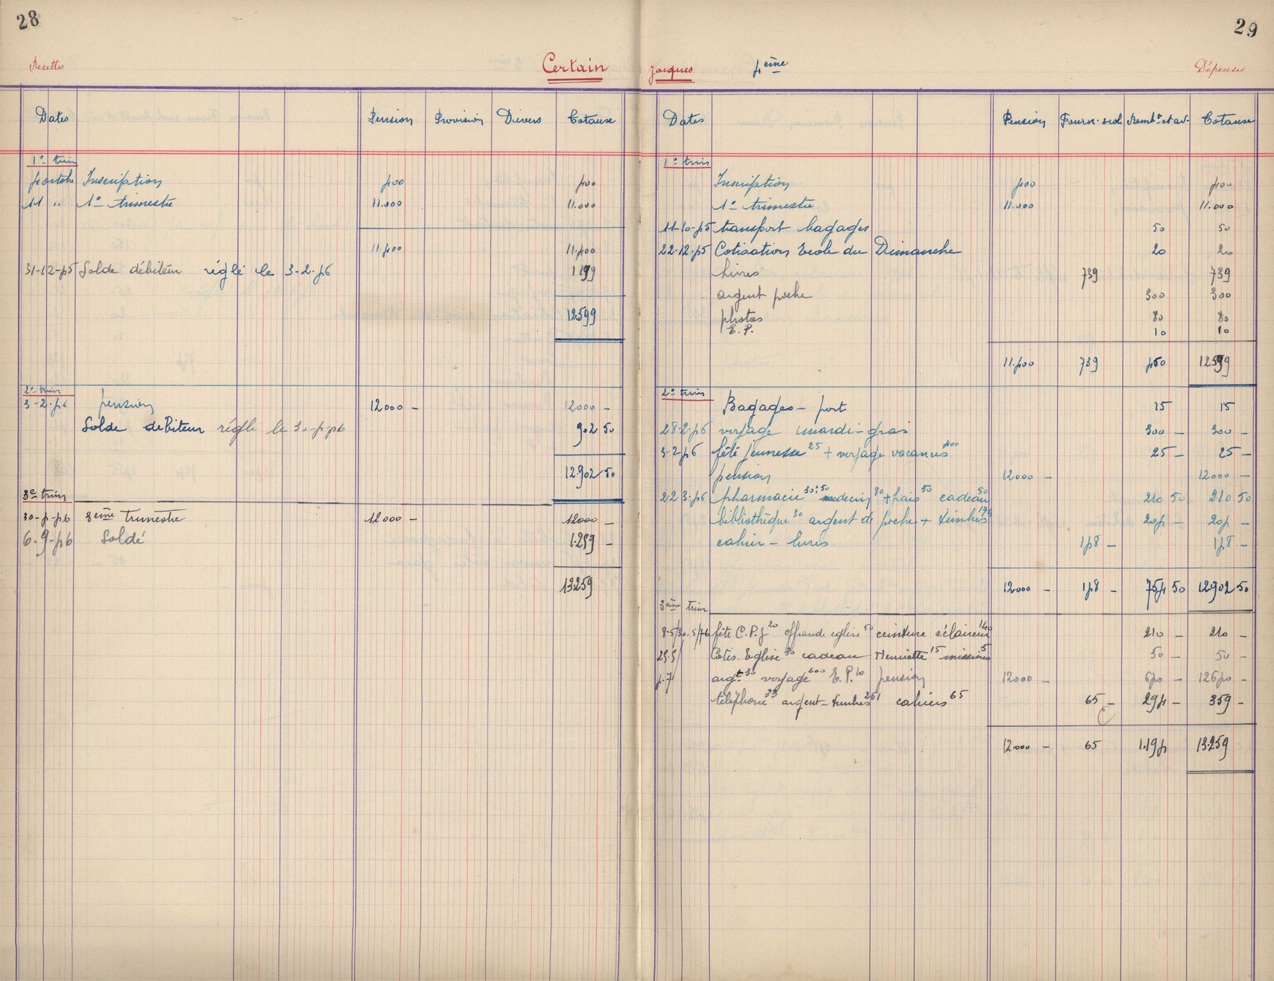 28
29
Recettes
Certain
Jacques
4ème
Dépenses
Dates Pension Provision Divers Totaux
Dates Pension Fourn. scol Remb. et av. Totaux
1er trim
4 octobre Inscription 400 400
11 " 1er trimestre 11.000 11.000
11.400 11.400
31-12-45 Solde débiteur réglé le 3-2-46 1199
12599
2e trim
3-2-46 pension 12000 - 12000 -
Solde débiteur réglé le 30-4-46 902 50
12.902 50
3e trim
30-4-46 3ème Trimestre 12000 - 12000 -
6.9-46 Soldé 1.259 -
13259
1er trim
Inscription 400 400
1er trimestre 11.000 11.000
11-10-45 transport bagages 50 50
22-12-45 Cotisation Ecole du Dimanche 20 20
livres 739 739
argent poche 300 300
photos 80 80
E.P. 10 10
11.400 739 460 12599
2e trim
Bagages - port 15 15
28-2-46 voyage mardi-gras 300 - 300 -
3-2-46 fête jeunesse 25 + voyage vacances 25 - 25 -
pension 12000 - 12000 -
22-3-46 pharmacie 30.50 medecin 80 + frais 50 cadeau 50 210 50 210 50
bibliothèque 30 argent de poche + timbres 174 204 - 204 -
cahier - livres 148 - 148 -
12000 - 148 - 754 50 12902 50
3ème trim
fête C.P.J 20 offrande eglise 50 ceinture éclaireur 140 210 - 210 -
Cotis. Eglise 30 cadeau Henriette 15 missions 5 50 - 50 -
4.7 argt 30 voyage 600 E.P. 10 pension 12000 - 640 - 12640 -
téléphone 33 argent - timbres 261 cahiers 65 65 - 294 - 359 -
12000 - 65 1.194 13259